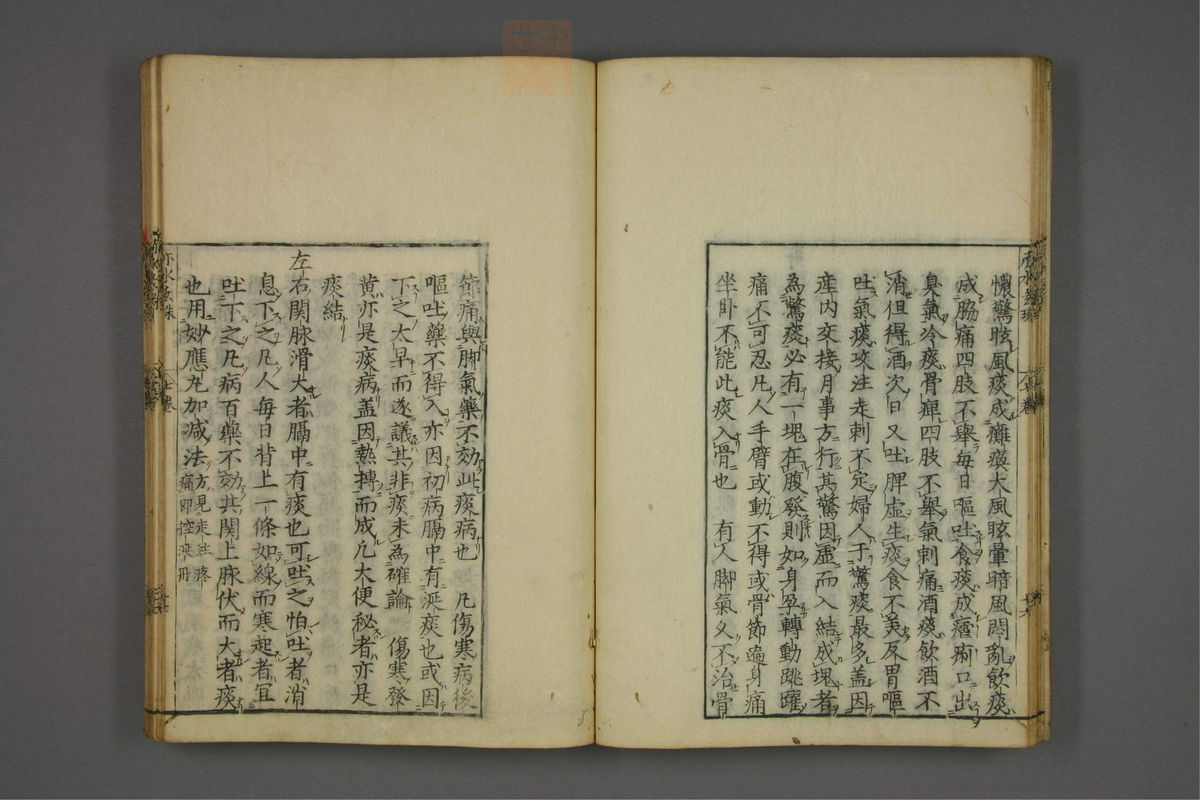 懊驚眩風痰成癱瘓大風眩暈暗風悶亂飲痰
成脇痛四肢不舉每日嘔吐食痰成瘧痢口出
臭氣冷痰骨痺四肢不舉氣刺痛酒痰飲酒不
消但得酒次日又吐脾虛生痰食不美反胃嘔
吐氣痰攻注走刺不定婦人于驚痰最多盖因
産内交接月事方行其驚因虛而入結成塊者
為驚痰必有一塊在腹發則如身孕轉動跳躍
痛不可忍凡人手臂或動不得或骨節遍身痛
坐卧不能此痰入骨也 有人脚氣又不治骨
節痛與脚氣藥不効此痰病也 凡傷寒病後
嘔吐藥不得入亦因初病膈中有涎痰也或因
下之太早而遂議其非痰未為確論 傷寒發
黄亦是痰病盖因熱搏而成凢大便秘者亦是
痰結
左右関脉滑大者膈中有痰也可吐之怕吐者消
息下之凢人每日背上一條如線而寒起者宜
吐下之凢病百藥不効其関上脉伏而大者痰
也用妙應丸加减法方見走注疼
痛即控涎丹